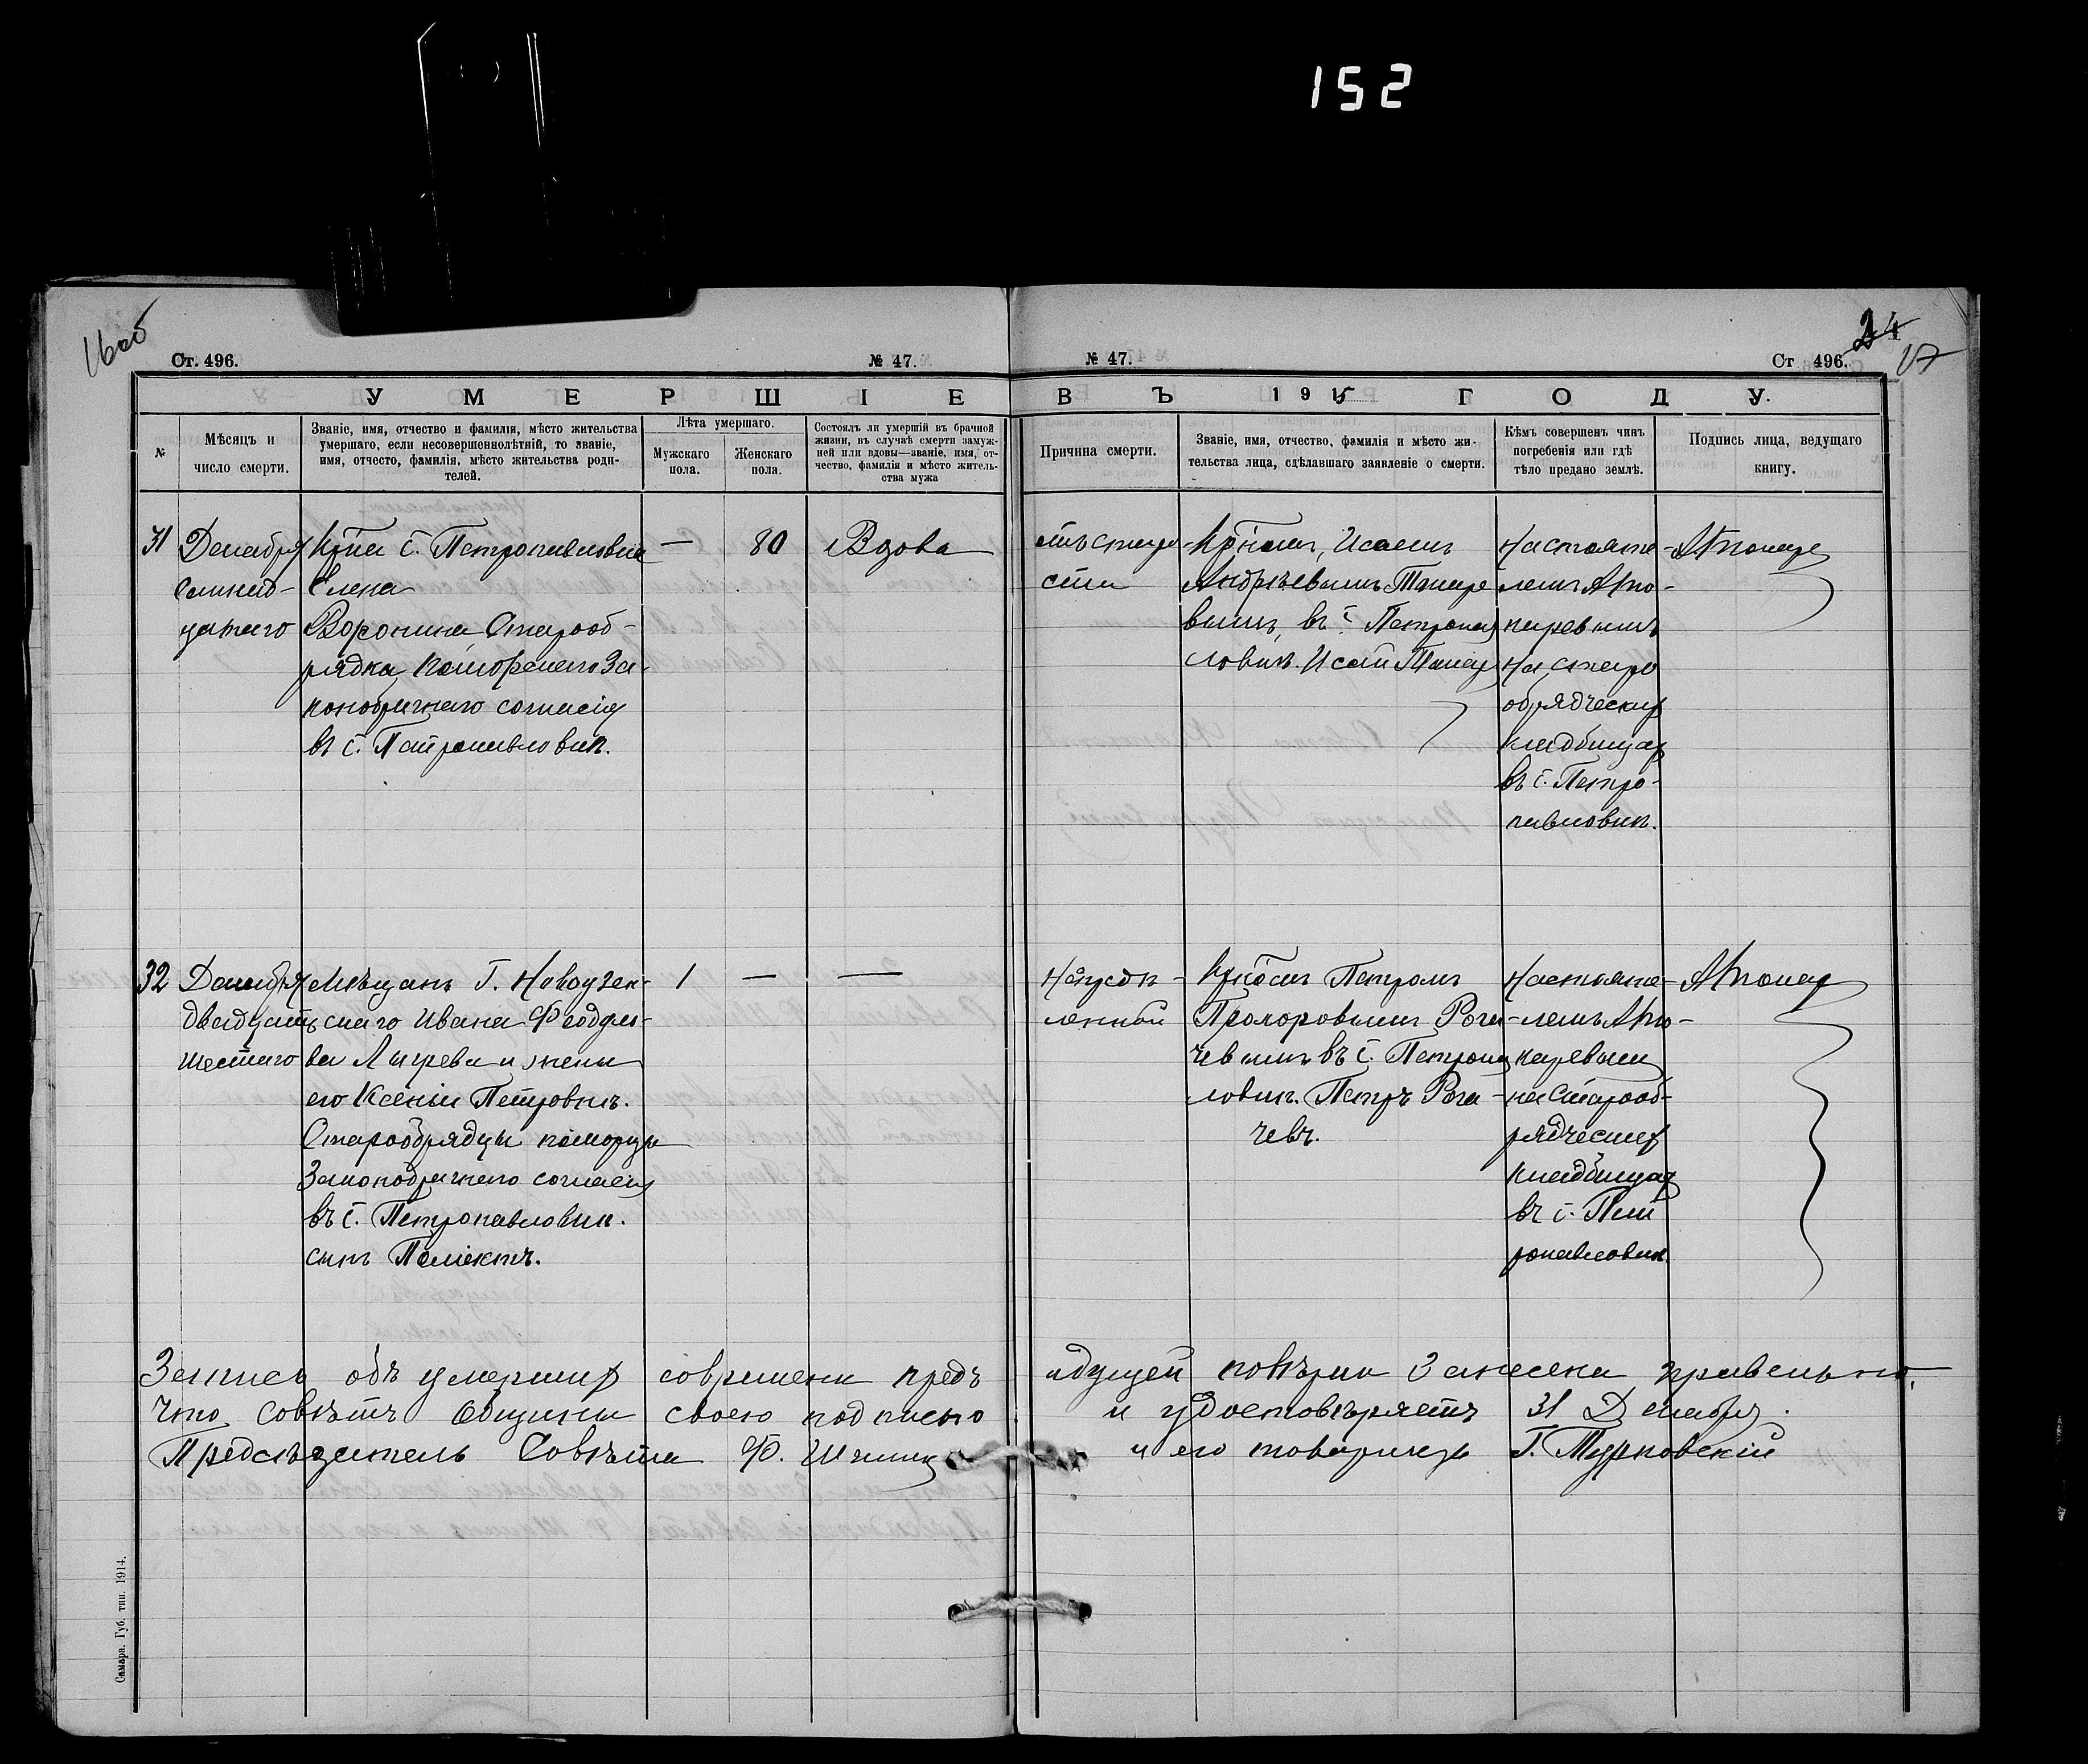 152
16 об
24
17
Ст. 496.
№ 47.
№ 47.
Ст 496.
УМЕРШІЕ
ВЪ 1915 ГОДУ.
№
Мѣсяцъ и
число смерти.
Званіе, имя, отчество и фамилія, мѣсто жительства
умершаго, если несовершеннолѣтній, то званіе,
имя, отчесто, фамилія, мѣсто жительства роди-
телей.
Лѣта умершаго.
Мужскаго
пола.
Женскаго
пола.
Состоялъ ли умершій въ брачной
жизни, въ случаѣ смерти замуж-
ней или вдовы—званіе, имя, от-
чество, фамилія и мѣсто житель-
ства мужа
Причина смерти.
Званіе, имя, отчество, фамилія и мѣсто жи-
тельства лица, сдѣлавшаго заявленіе о смерти.
Кѣмъ совершенъ чинъ
погребенія или гдѣ
тѣло предано землѣ.
Подпись лица, ведущаго
книгу.
31
Декабря
Семнад-
цатаго
с. Петропавловки
Елена
Воронина Старооб-
рядка Поморскаго За-
конобрачнаго согласія
въ с. Петропавловкѣ.
—
80
Вдова
отъ старо-
сти
Исаемъ
Андрѣевымъ
вымъ, въ с. Петропав
ловкѣ. Исай
Настояте-
лемъ
на старо
обрядческих
кладбищах
въ с. Петро-
павловкѣ.
32
Декабря
двадцать
шестаго
Мѣщанъ г. Новоузен-
скаго Ивана Феодоло-
ва и жены
его Ксеніи Петровнъ.
Старообрядцы поморцы
Законобрачнаго согласія
въ с. Петропавловкѣ.
сынъ Поліектъ.
1
—
—
Петромъ
Прохоровымъ Рога-
чевымъ въ с. Петропав
ловкѣ. Петръ Рога-
чевъ.
Настояте-
лемъ
на Старооб-
рядческих
кладбищах
въ с. Пет
ропавловкѣ.
Запись объ умерших совршена предъ идущей повѣрки Занесена правельно,
что Совѣтъ Общины своею подписью и удостовѣряетъ 31 Декабря.
Предсѣдатель Совѣта Ф. и его товарищъ Г. Турковскій
Самара. Губ. тип. 1914.